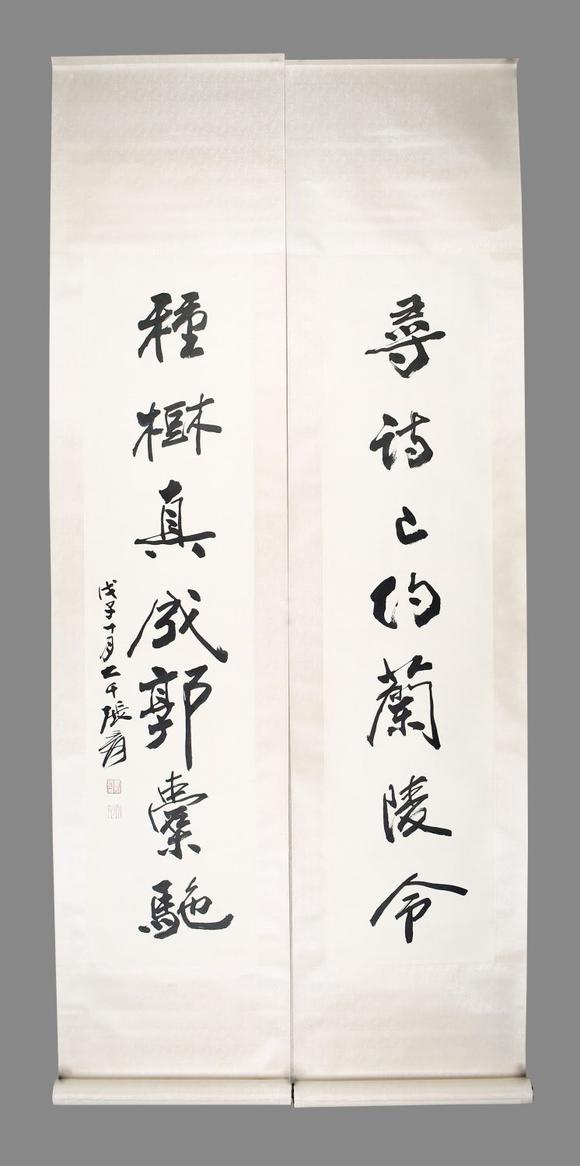 尋詩已約蘭陵令
種樹真成郭橐駞
戊子十月大千張爰